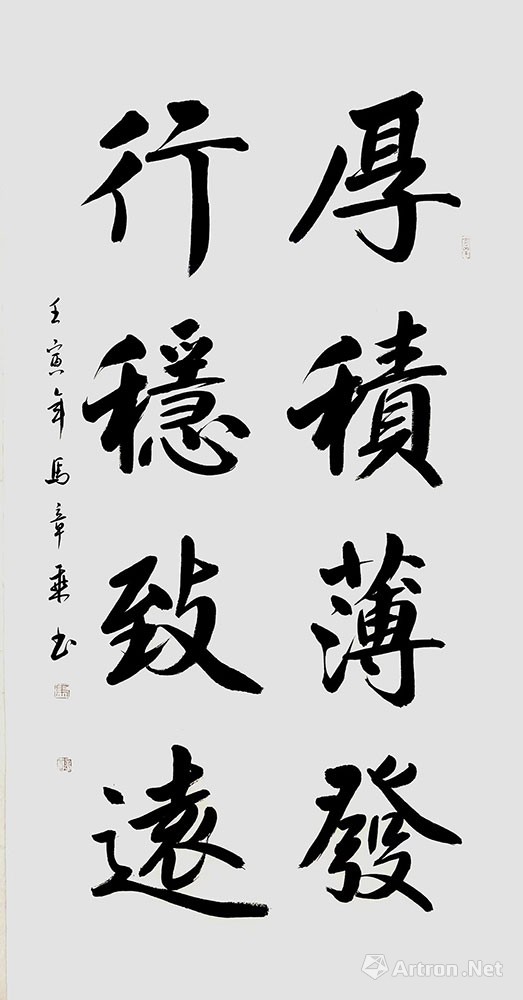 厚積薄發
行穩致遠
壬寅年馬章乘书
Artron.Net